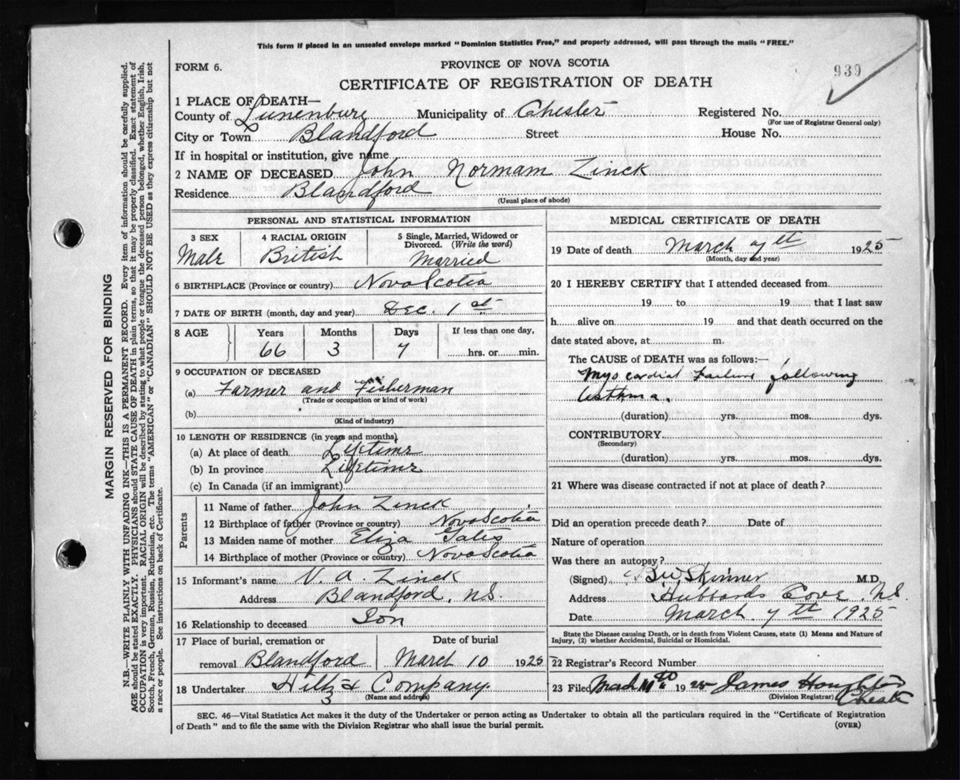 This form if placed in an unsealed envelope marked "Dominion Statistics Free," and properly addressed, will pass through the mails "FREE."
FORM 6.
PROVINCE OF NOVA SCOTIA
939
CERTIFICATE OF REGISTRATION OF DEATH
1 PLACE OF DEATH—
County of Lunenburg Municipality of Chester Registered No.
(For use of Registrar General only)
City or Town Blandford Street House No.
If in hospital or institution, give name
2 NAME OF DECEASED John Normam Zinck
Residence Blandford
(Usual place of abode)
PERSONAL AND STATISTICAL INFORMATION
3 SEX 4 RACIAL ORIGIN 5 Single, Married, Widowed or Divorced. (Write the word)
Male British Married
6 BIRTHPLACE (Province or country) Nova Scotia
7 DATE OF BIRTH (month, day and year) Dec. 1st
8 AGE Years Months Days If less than one day,
66 3 7 hrs. or min.
9 OCCUPATION OF DECEASED
(a) Farmer and Fisherman
(Trade or occupation or kind of work)
(b)
(Kind of industry)
10 LENGTH OF RESIDENCE (in years and months)
(a) At place of death Lifetime
(b) In province Lifetime
(c) In Canada (if an immigrant)
Parents
11 Name of father John Zinck
12 Birthplace of father (Province or country) Nova Scotia
13 Maiden name of mother Eliza
14 Birthplace of mother (Province or country) Nova Scotia
15 Informant's name V. A. Zinck
Address Blandford, N.S.
16 Relationship to deceased Son
17 Place of burial, cremation or Date of burial
removal Blandford March 10 1925
18 Undertaker Hiltz & Company
(Name and address)
MEDICAL CERTIFICATE OF DEATH
19 Date of death March 7th 1925
(Month, day and year)
20 I HEREBY CERTIFY that I attended deceased from
19 to 19 that I last saw
h alive on 19 and that death occurred on the
date stated above, at m.
The CAUSE OF DEATH was as follows:—
Myocardial Failure following
Asthma.
(duration) yrs. mos. dys.
CONTRIBUTORY
(Secondary)
(duration) yrs. mos. dys.
21 Where was disease contracted if not at place of death?
Did an operation precede death? Date of
Nature of operation
Was there an autopsy?
(Signed) Skinner M.D.
Address Hubbards Cove N.S.
Date March 7th 1925
State the Disease causing Death, or in death from Violent Causes, state (1) Means and Nature of
Injury, (2) whether Accidental, Suicidal or Homicidal.
22 Registrar's Record Number
23 Filed March 19 25 James
(Division Registrar)
SEC. 46—Vital Statistics Act makes it the duty of the Undertaker or person acting as Undertaker to obtain all the particulars required in the "Certificate of Registration
of Death" and to file the same with the Division Registrar who shall issue the burial permit. (OVER)
MARGIN RESERVED FOR BINDING
N.B.—WRITE PLAINLY WITH UNFADING INK—THIS IS A PERMANENT RECORD. Every item of information should be carefully supplied.
AGE should be stated EXACTLY. PHYSICIANS should STATE CAUSE OF DEATH in plain terms, so that it may be properly classified. Exact statement of
OCCUPATION is very important. RACIAL ORIGIN will be described by stating to what people or tongue the deceased person belonged, whether English, Irish,
Scotch, French, German, Russian, Ruthenian, etc. The terms "AMERICAN" or "CANADIAN" SHOULD NOT BE USED as they express citizenship but not
a race or people. See instructions on back of Certificate.